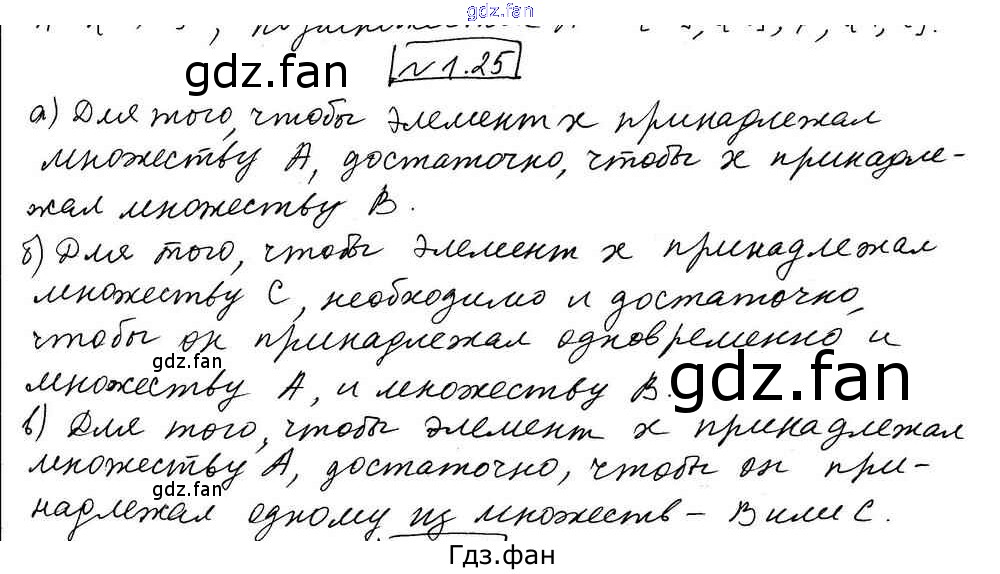 gdz.fan
N 1.25
gdz.fan
а) Для того, чтобы элемент x принадлежал
множеству A, достаточно, чтобы x принадле-
жал множеству B.
б) Для того, чтобы элемент x принадлежал
множеству C, необходимо и достаточно,
чтобы он принадлежал одновременно и
gdz.fan
множеству A, и множеству B.
gdz.fan
в) Для того, чтобы элемент x принадлежал
множеству A, достаточно, чтобы он при-
gdz.fan
надлежал одному из множеств - B или C.
Гдз.фан